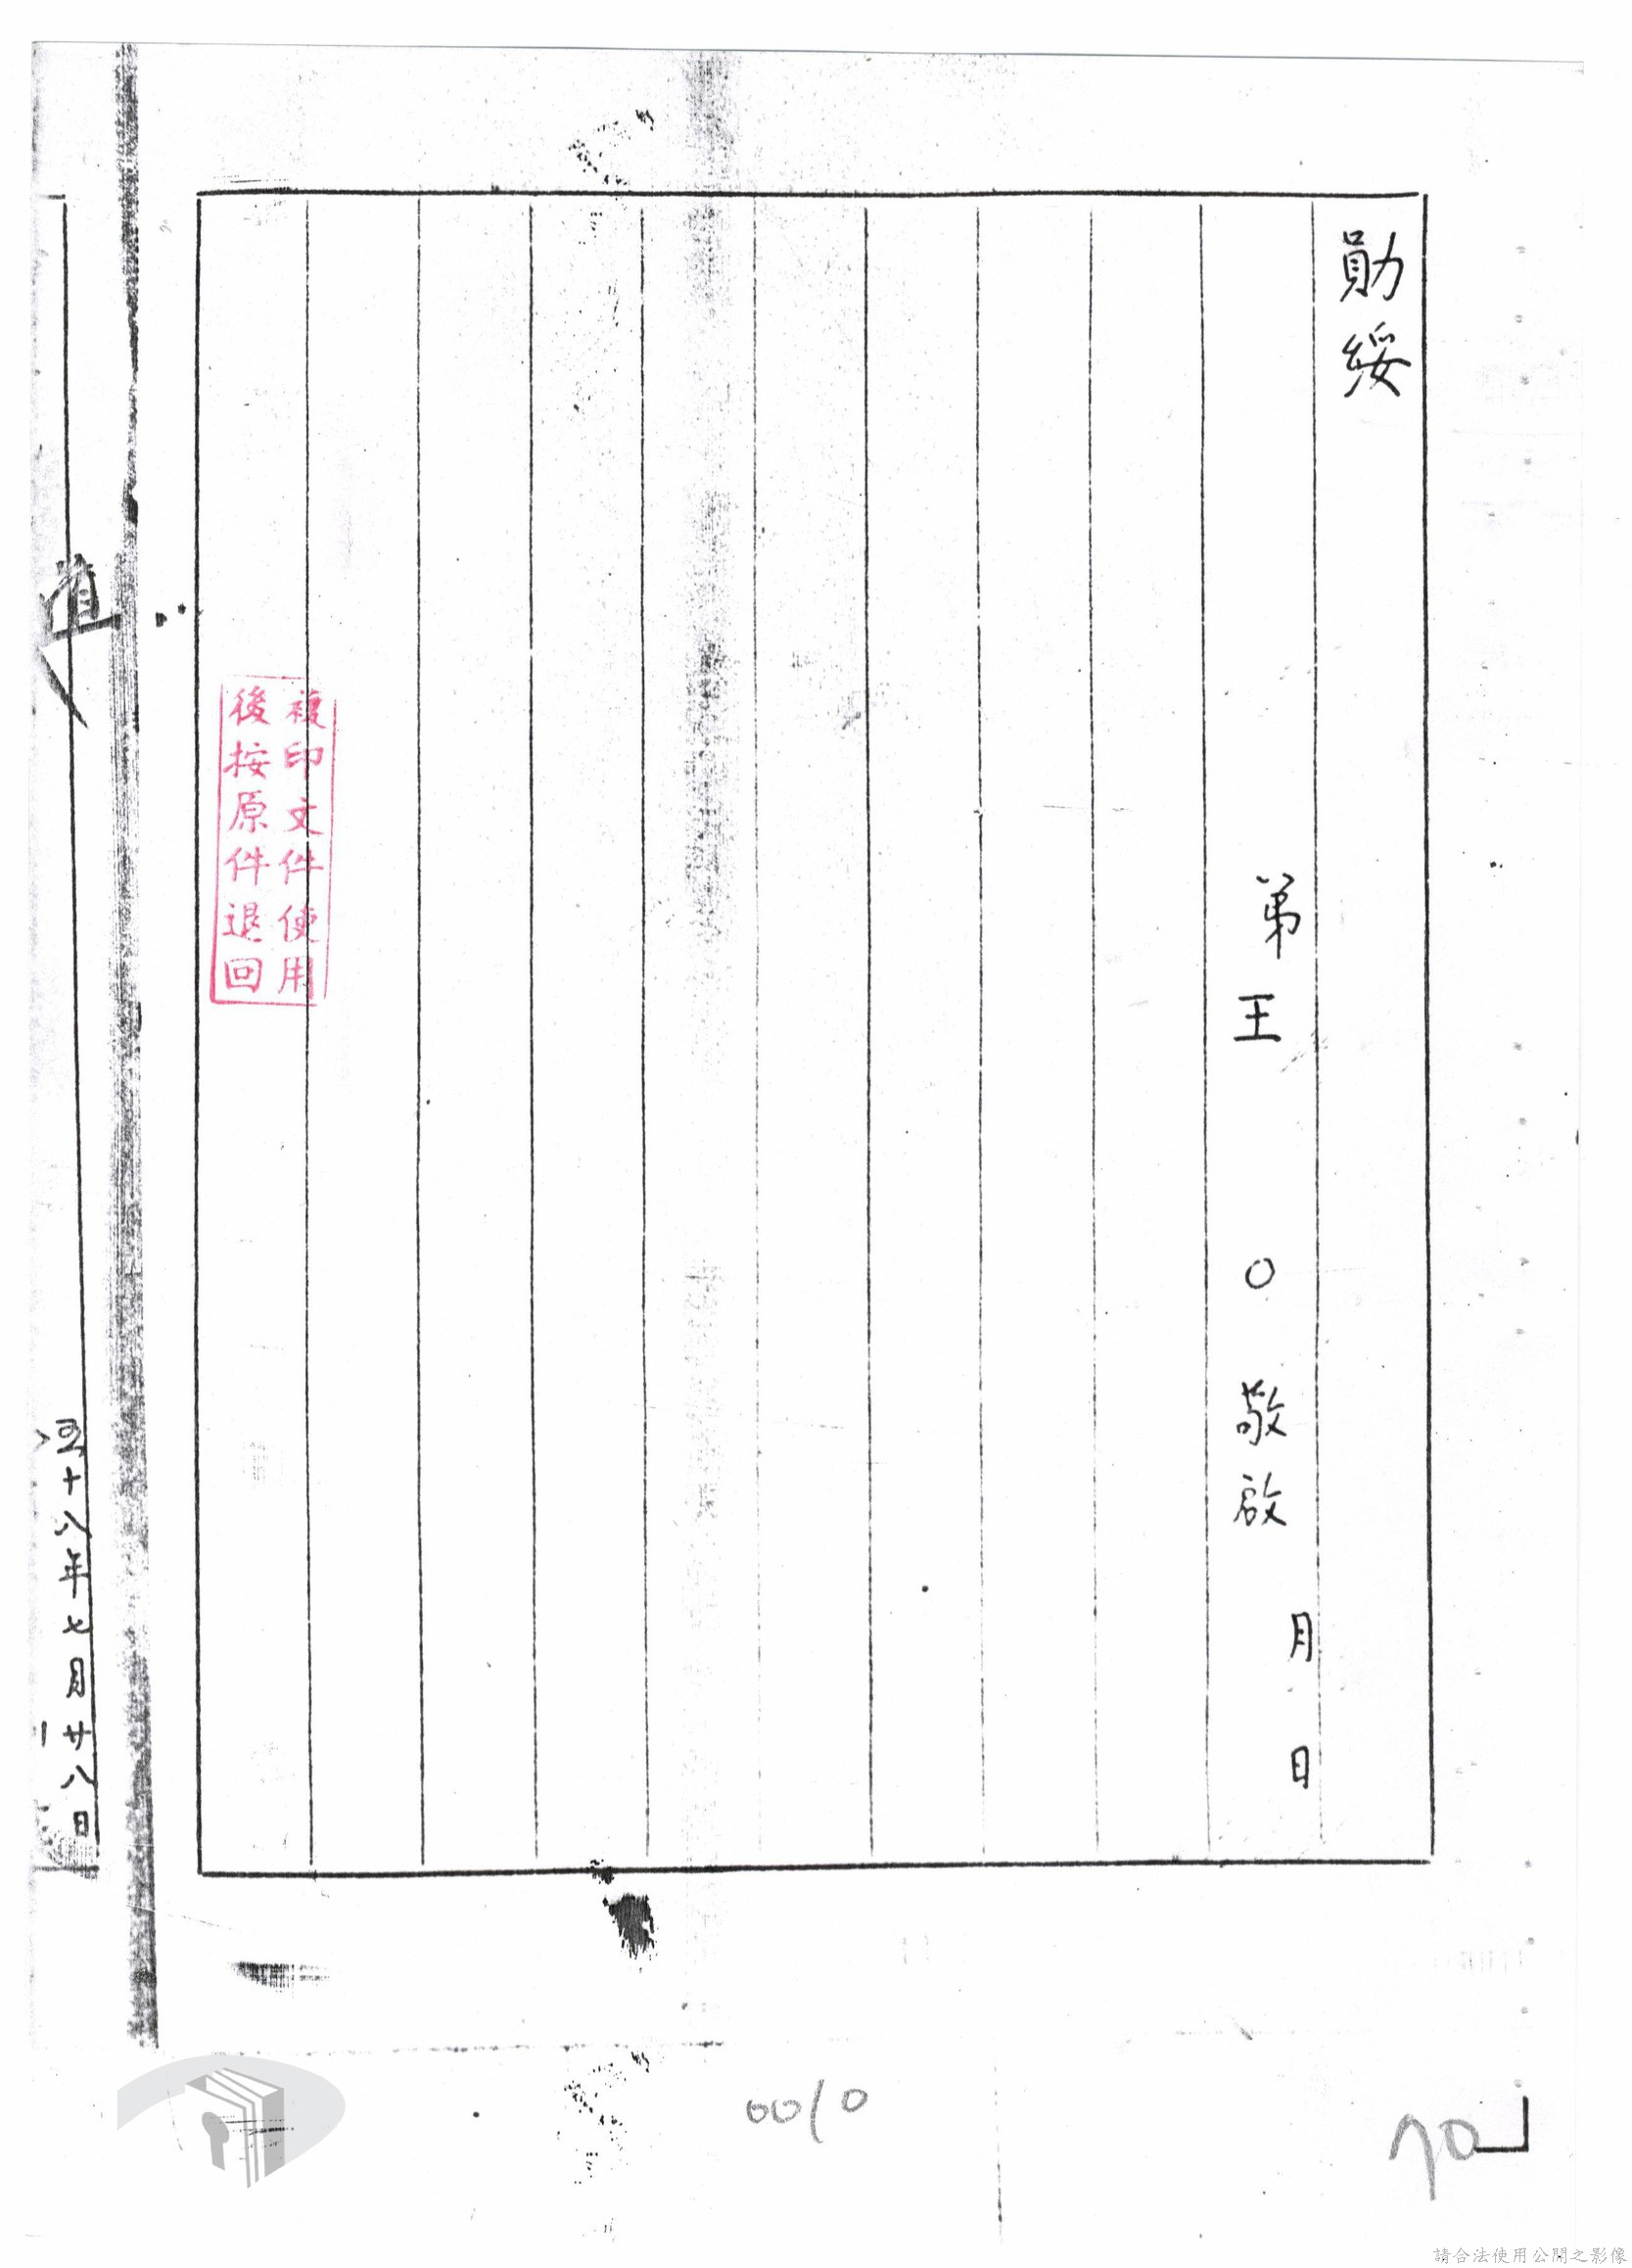 勛綏
月日
弟王○敬啟
複印文件使用
後按原件退回
五十八年七月廿八日
0010
70
請合法使用公開之影像